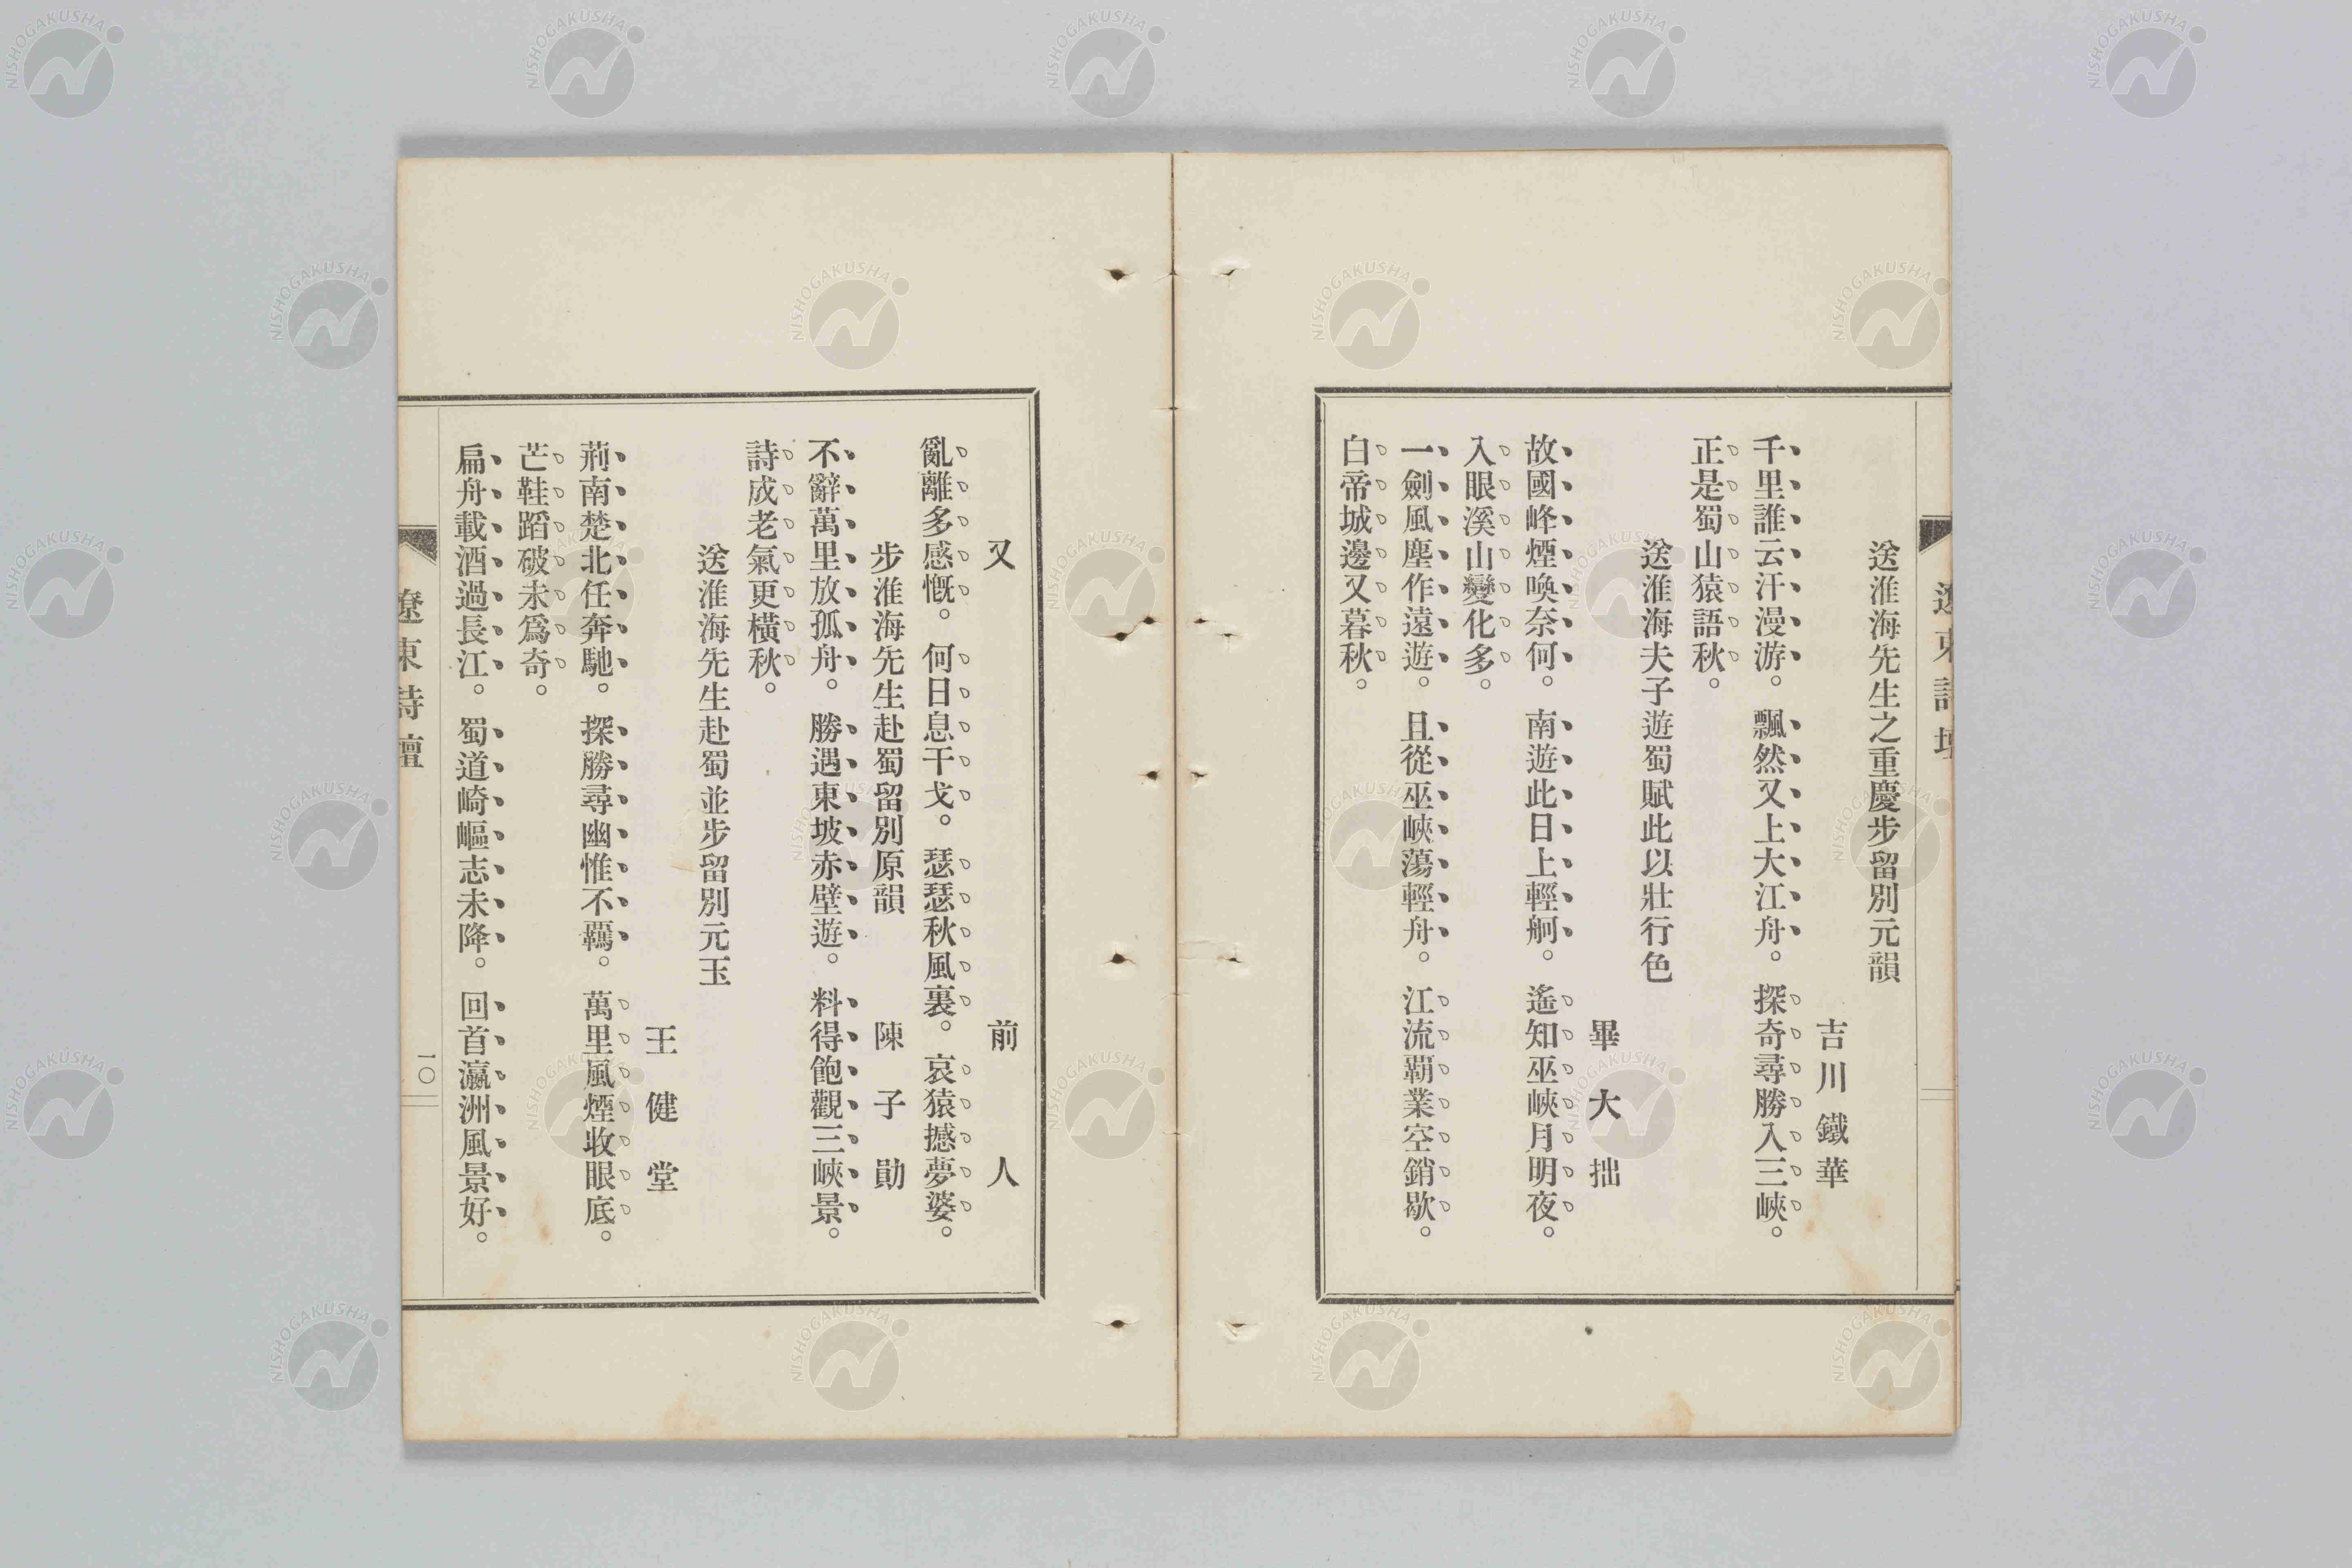 遼東詩壇
送淮海先生之重慶步留別元韻
吉川鐵華
千里誰云汗漫游。飄然又上大江舟。探奇尋勝入三峽。
正是蜀山猿語秋。
送淮海夫子遊蜀賦此以壯行色
畢大拙
故國峰煙喚奈何。南遊此日上輕舸。遙知巫峽月明夜。
入眼溪山變化多。
一劍風塵作遠遊。且從巫峽蕩輕舟。江流覇業空銷歇。
白帝城邊又暮秋。
又
前人
亂離多感慨。何日息干戈。瑟瑟秋風裏。哀猿撼夢婆。
步淮海先生赴蜀留別原韻
陳子勛
不辭萬里放孤舟。勝遇東坡赤壁遊。料得飽觀三峽景。
詩成老氣更橫秋。
送淮海先生赴蜀並步留別元玉
王健堂
荊南楚北任奔馳。探勝尋幽惟不羈。萬里風煙收眼底。
芒鞋蹈破未爲奇。
扁舟載酒過長江。蜀道崎嶇志未降。回首瀛洲風景好。
遼東詩壇
一〇
NISHOGAKUSHA